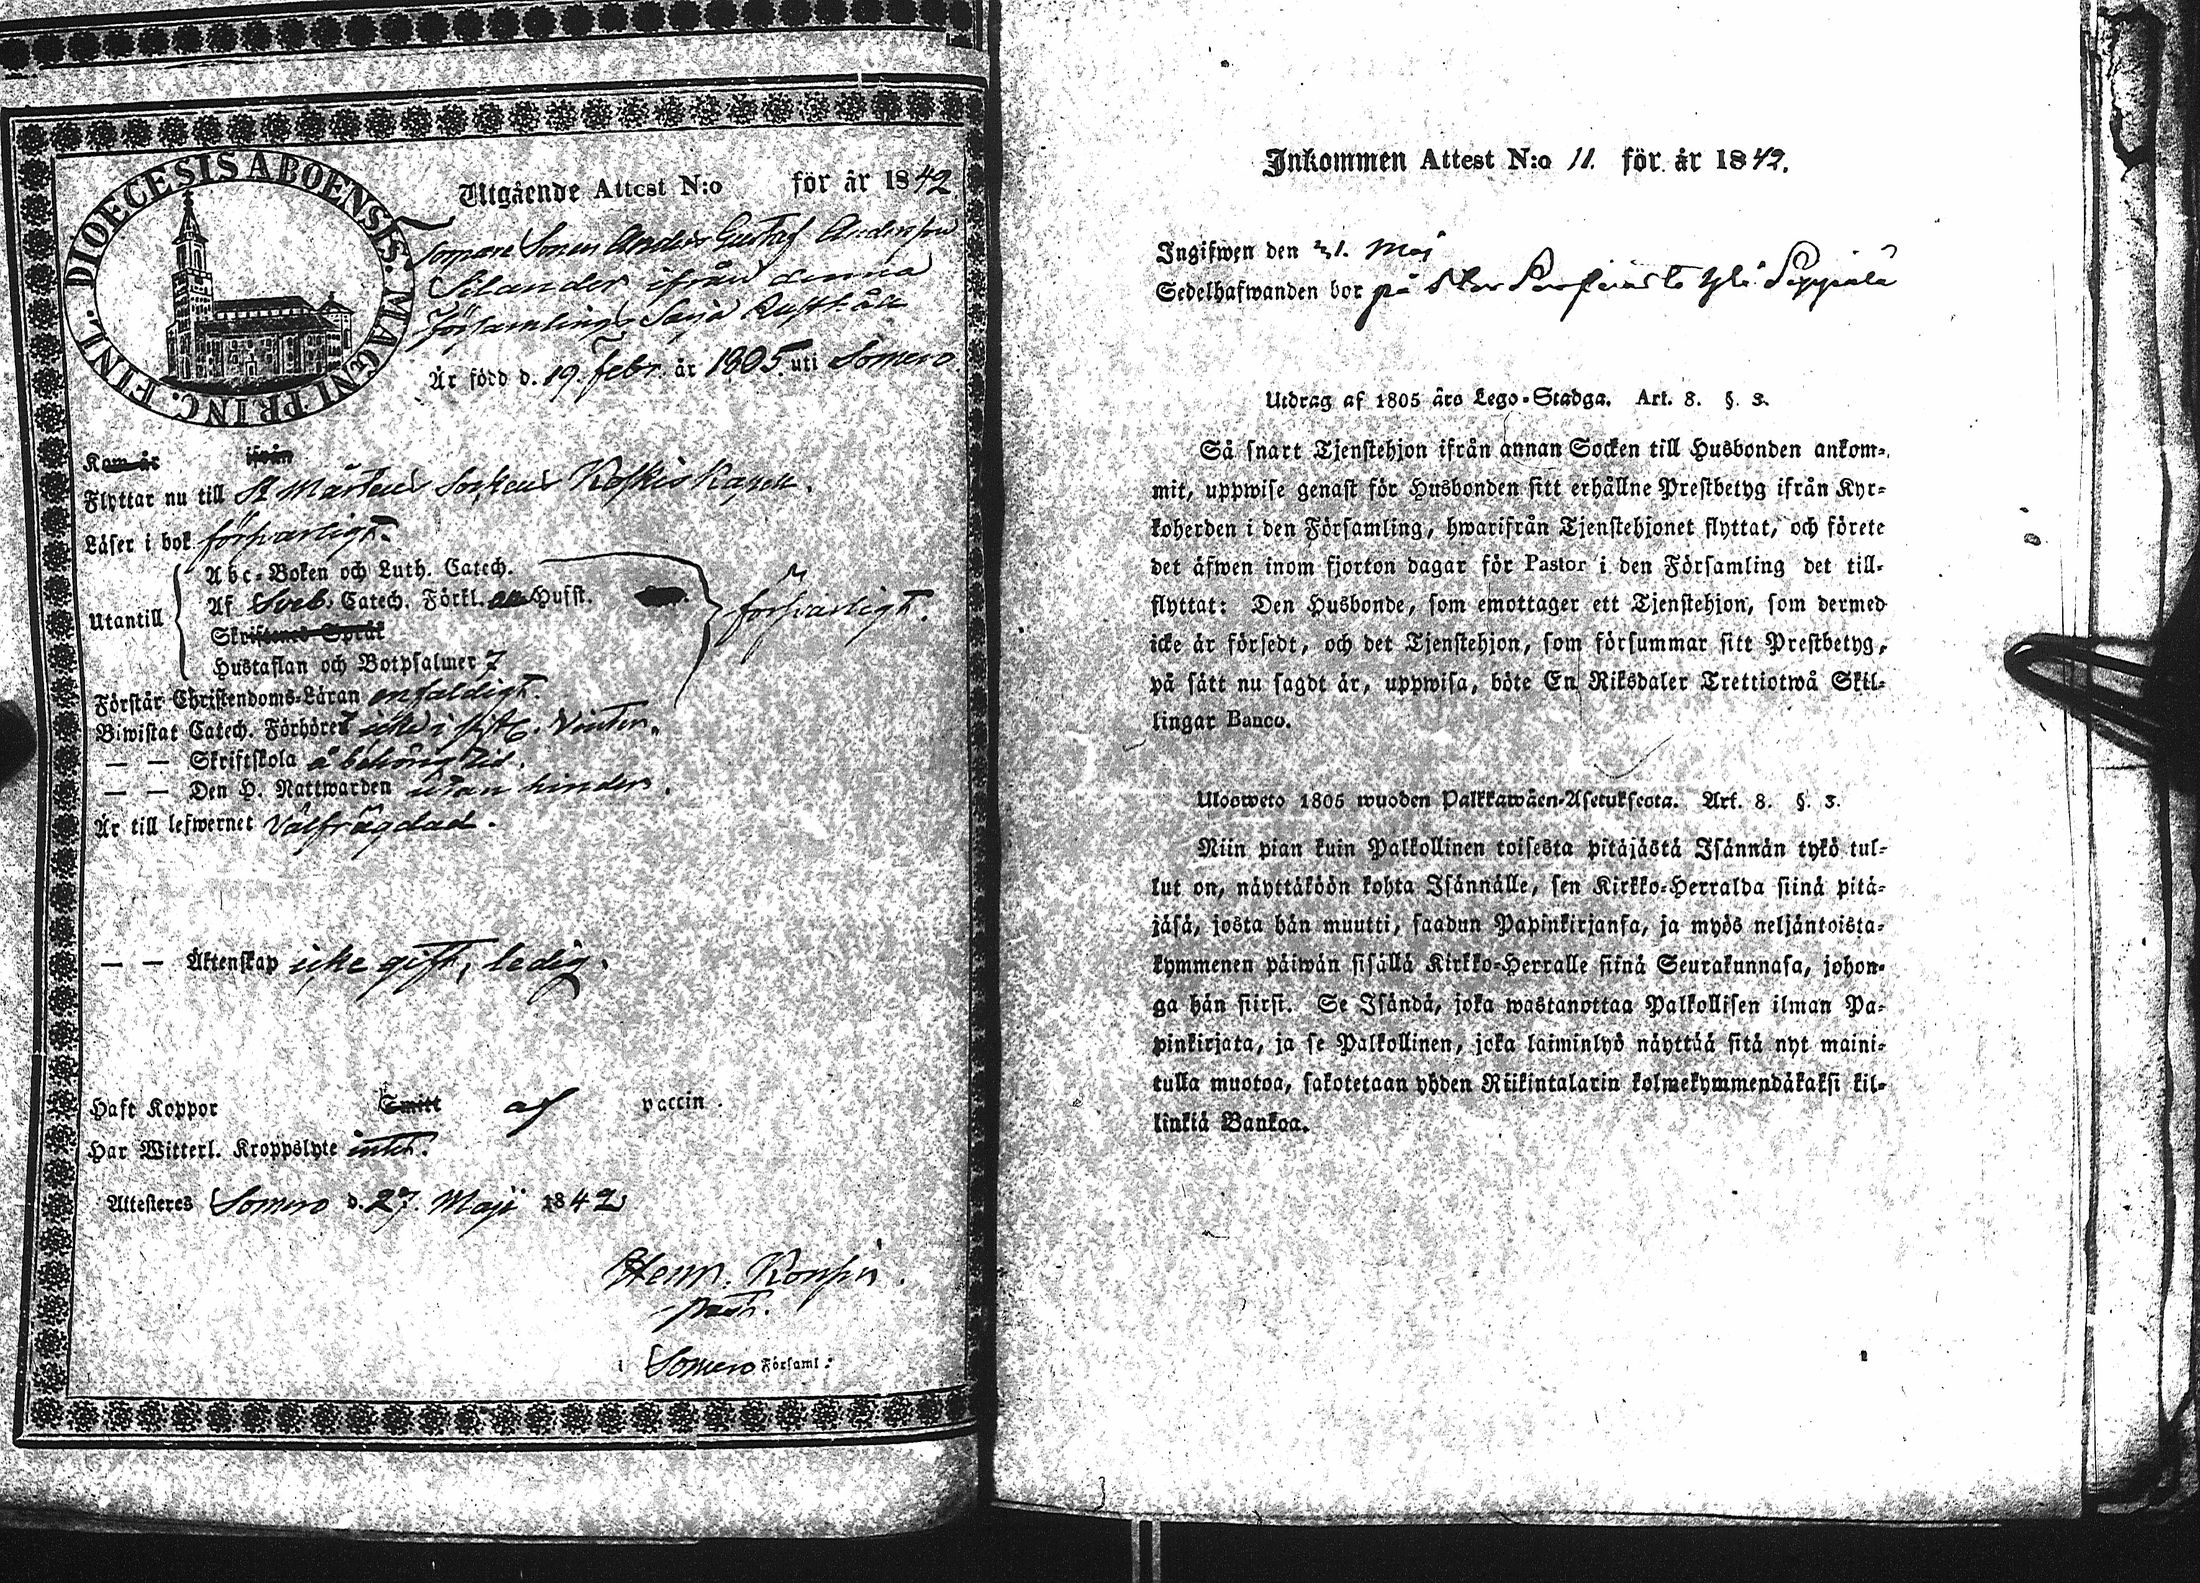 DIOECESIS ABOENSIS. MAGNI PRINC. FINL.
Utgående Attest N:o för år 1842
Sonen Anders Gustaf Andersson
Silander ifrån denna
Församlings Rusthåll
Är född d. 19. febr. år 1805. uti Somero
Kom år ifrån
Flyttar nu till St Mårtens Sockens Koskis Kapell.
Läser i bok försvarligt.
Utantill
Abc-Boken och Luth. Catech.
Af Sveb. Catech. Förkl. Husst.
försvarligt.
Skriftenes Språk
Hustaflan och Botpsalmer 7
Förstår Christendoms-Läran enfaldigt.
Biwistat Catech. Förhöret Vinter.
— — Skriftskola å behörig tid.
— — Den H. Nattwarden utan hinder.
Är till lefwernet Välfrägdad.
— — Äktenskap icke gift, ledig.
Haft Koppor Smitt af vaccin.
Har Witterl. Kroppslyte intet.
Attesteres Somero d. 27. Maji 1842
Henr.
i Somero Församl:
Inkommen Attest N:o 11. för år 1842.
Ingifwen den 31. Maj
Sedelhafwanden bor på
Utdrag af 1805 års Lego-Stadga. Art. 8. §. 3.
Så snart Tjenstehjon ifrån annan Socken till Husbonden ankom-
mit, uppwise genast för Husbonden sitt erhållne Prestbetyg ifrån Kyr-
koherden i den Församling, hwarifrån Tjenstehjonet flyttat, och förete
det äfwen inom fjorton dagar för Pastor i den Församling det till-
flyttat: Den Husbonde, som emottager ett Tjenstehjon, som dermed
icke är försedt, och det Tjenstehjon, som försummar sitt Prestbetyg,
på sätt nu sagdt är, uppwisa, böte En Riksdaler Trettiotwå Skil-
lingar Banco.
Ulosweto 1805 wuoden Palkkawäen-Asetuksesta. Art. 8. §. 3.
Niin pian kuin Palkollinen toisesta pitäjästä Isännän tykö tul-
lut on, näyttäköön kohta Isännälle, sen Kirkko-Herralda siinä pitä-
jäsä, josta hän muutti, saadun Papinkirjansa, ja myös neljäntoista-
kymmenen päiwän sisällä Kirkko-Herralle siinä Seurakunnasa, johon-
ga hän siirsi. Se Isändä, joka wastanottaa Palkollisen ilman Pa-
pinkirjata, ja se Palkollinen, joka laiminlyö näyttää sitä nyt maini-
tulla muotoa, sakotetaan yhden Riikintalarin kolmekymmendäkaksi kil-
linkiä Bankoa.